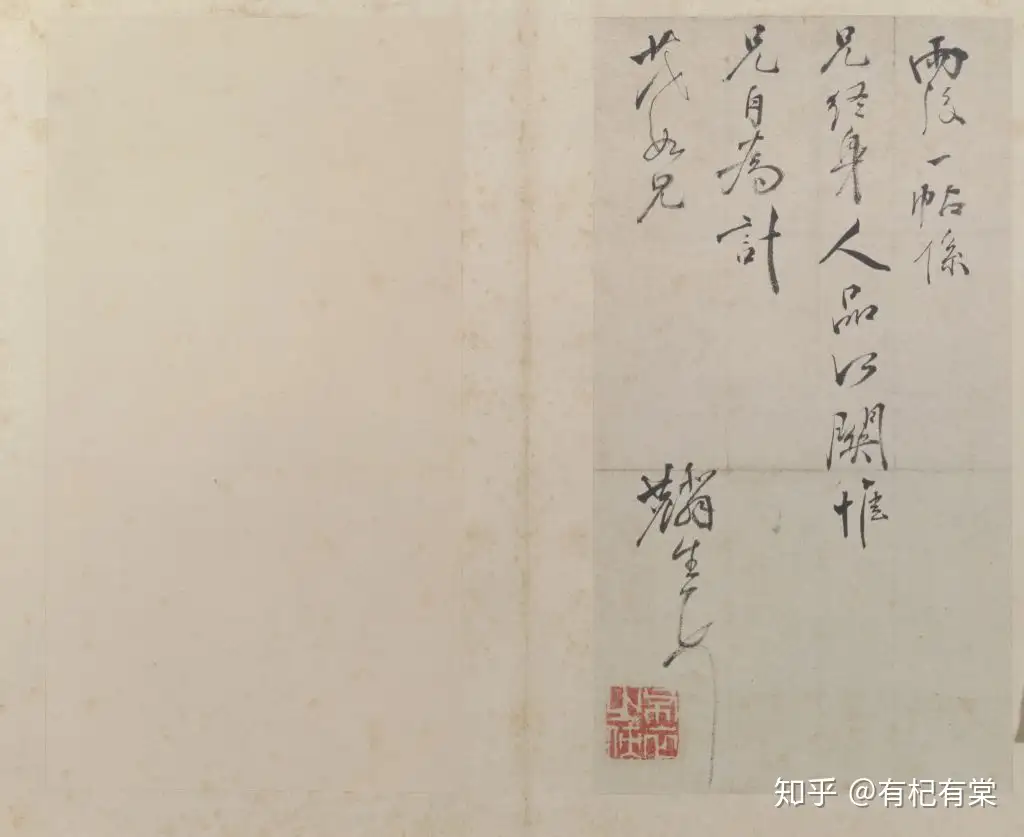 雨後一帖係
兄終身人品所關惟
兄自為計
茂如兄
麟生
知乎 @有杞有棠